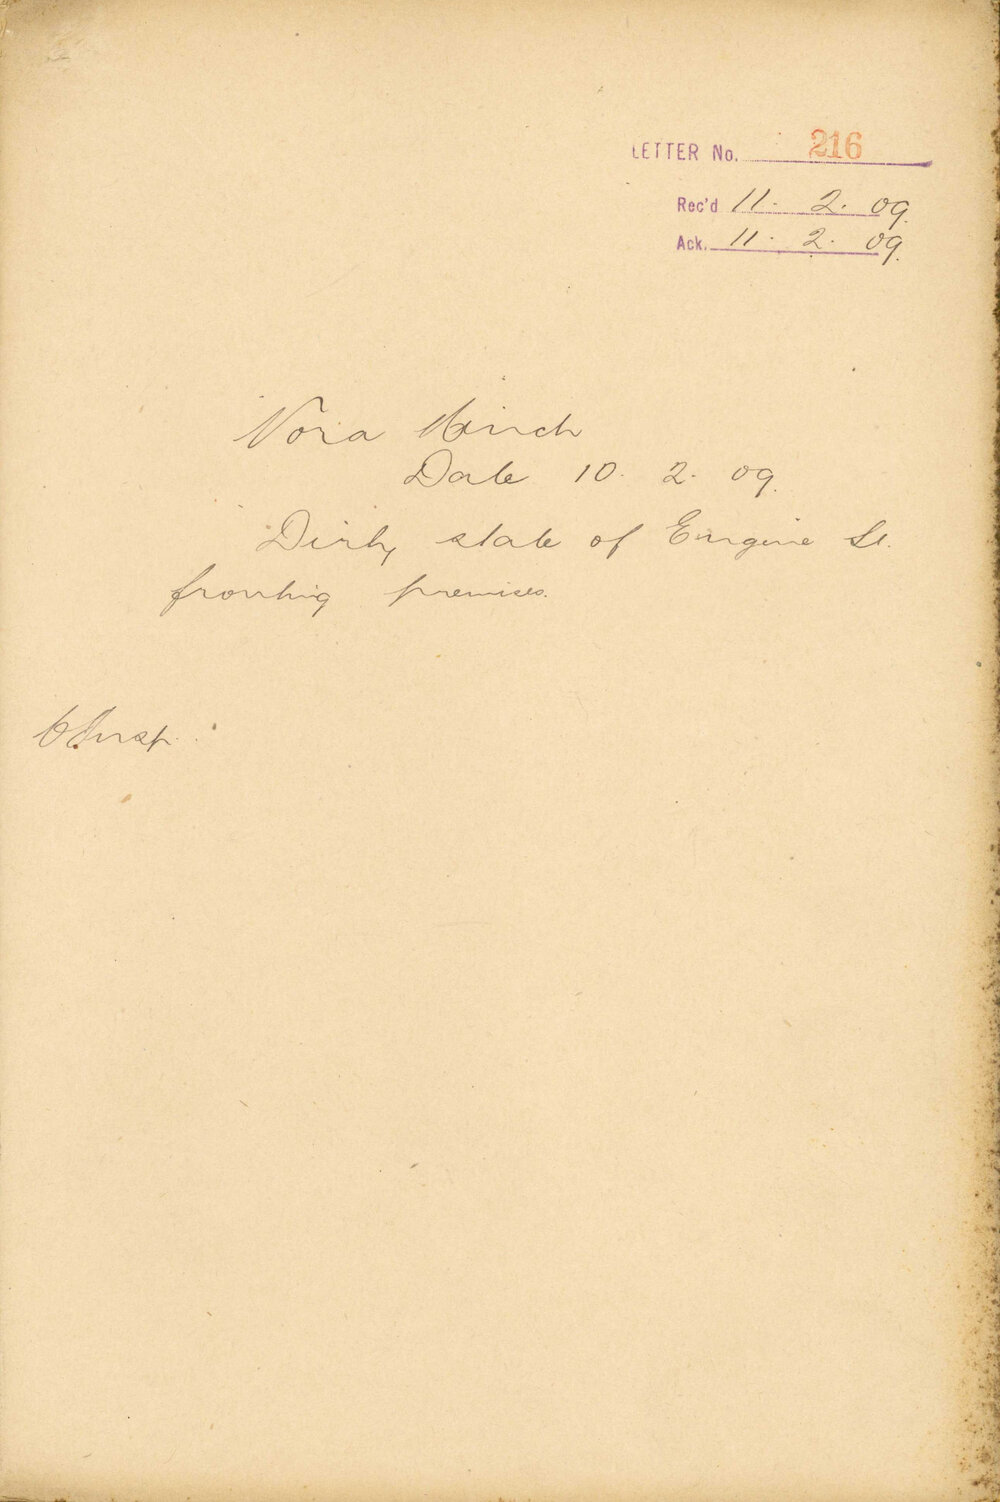 LETTER No. 216
Rec'd 11. 2. 09.
Ack. 11. 2. 09.
Nora
Date 10. 2. 09.
Dirty state of Engine St.
fronting premises.
Insp.